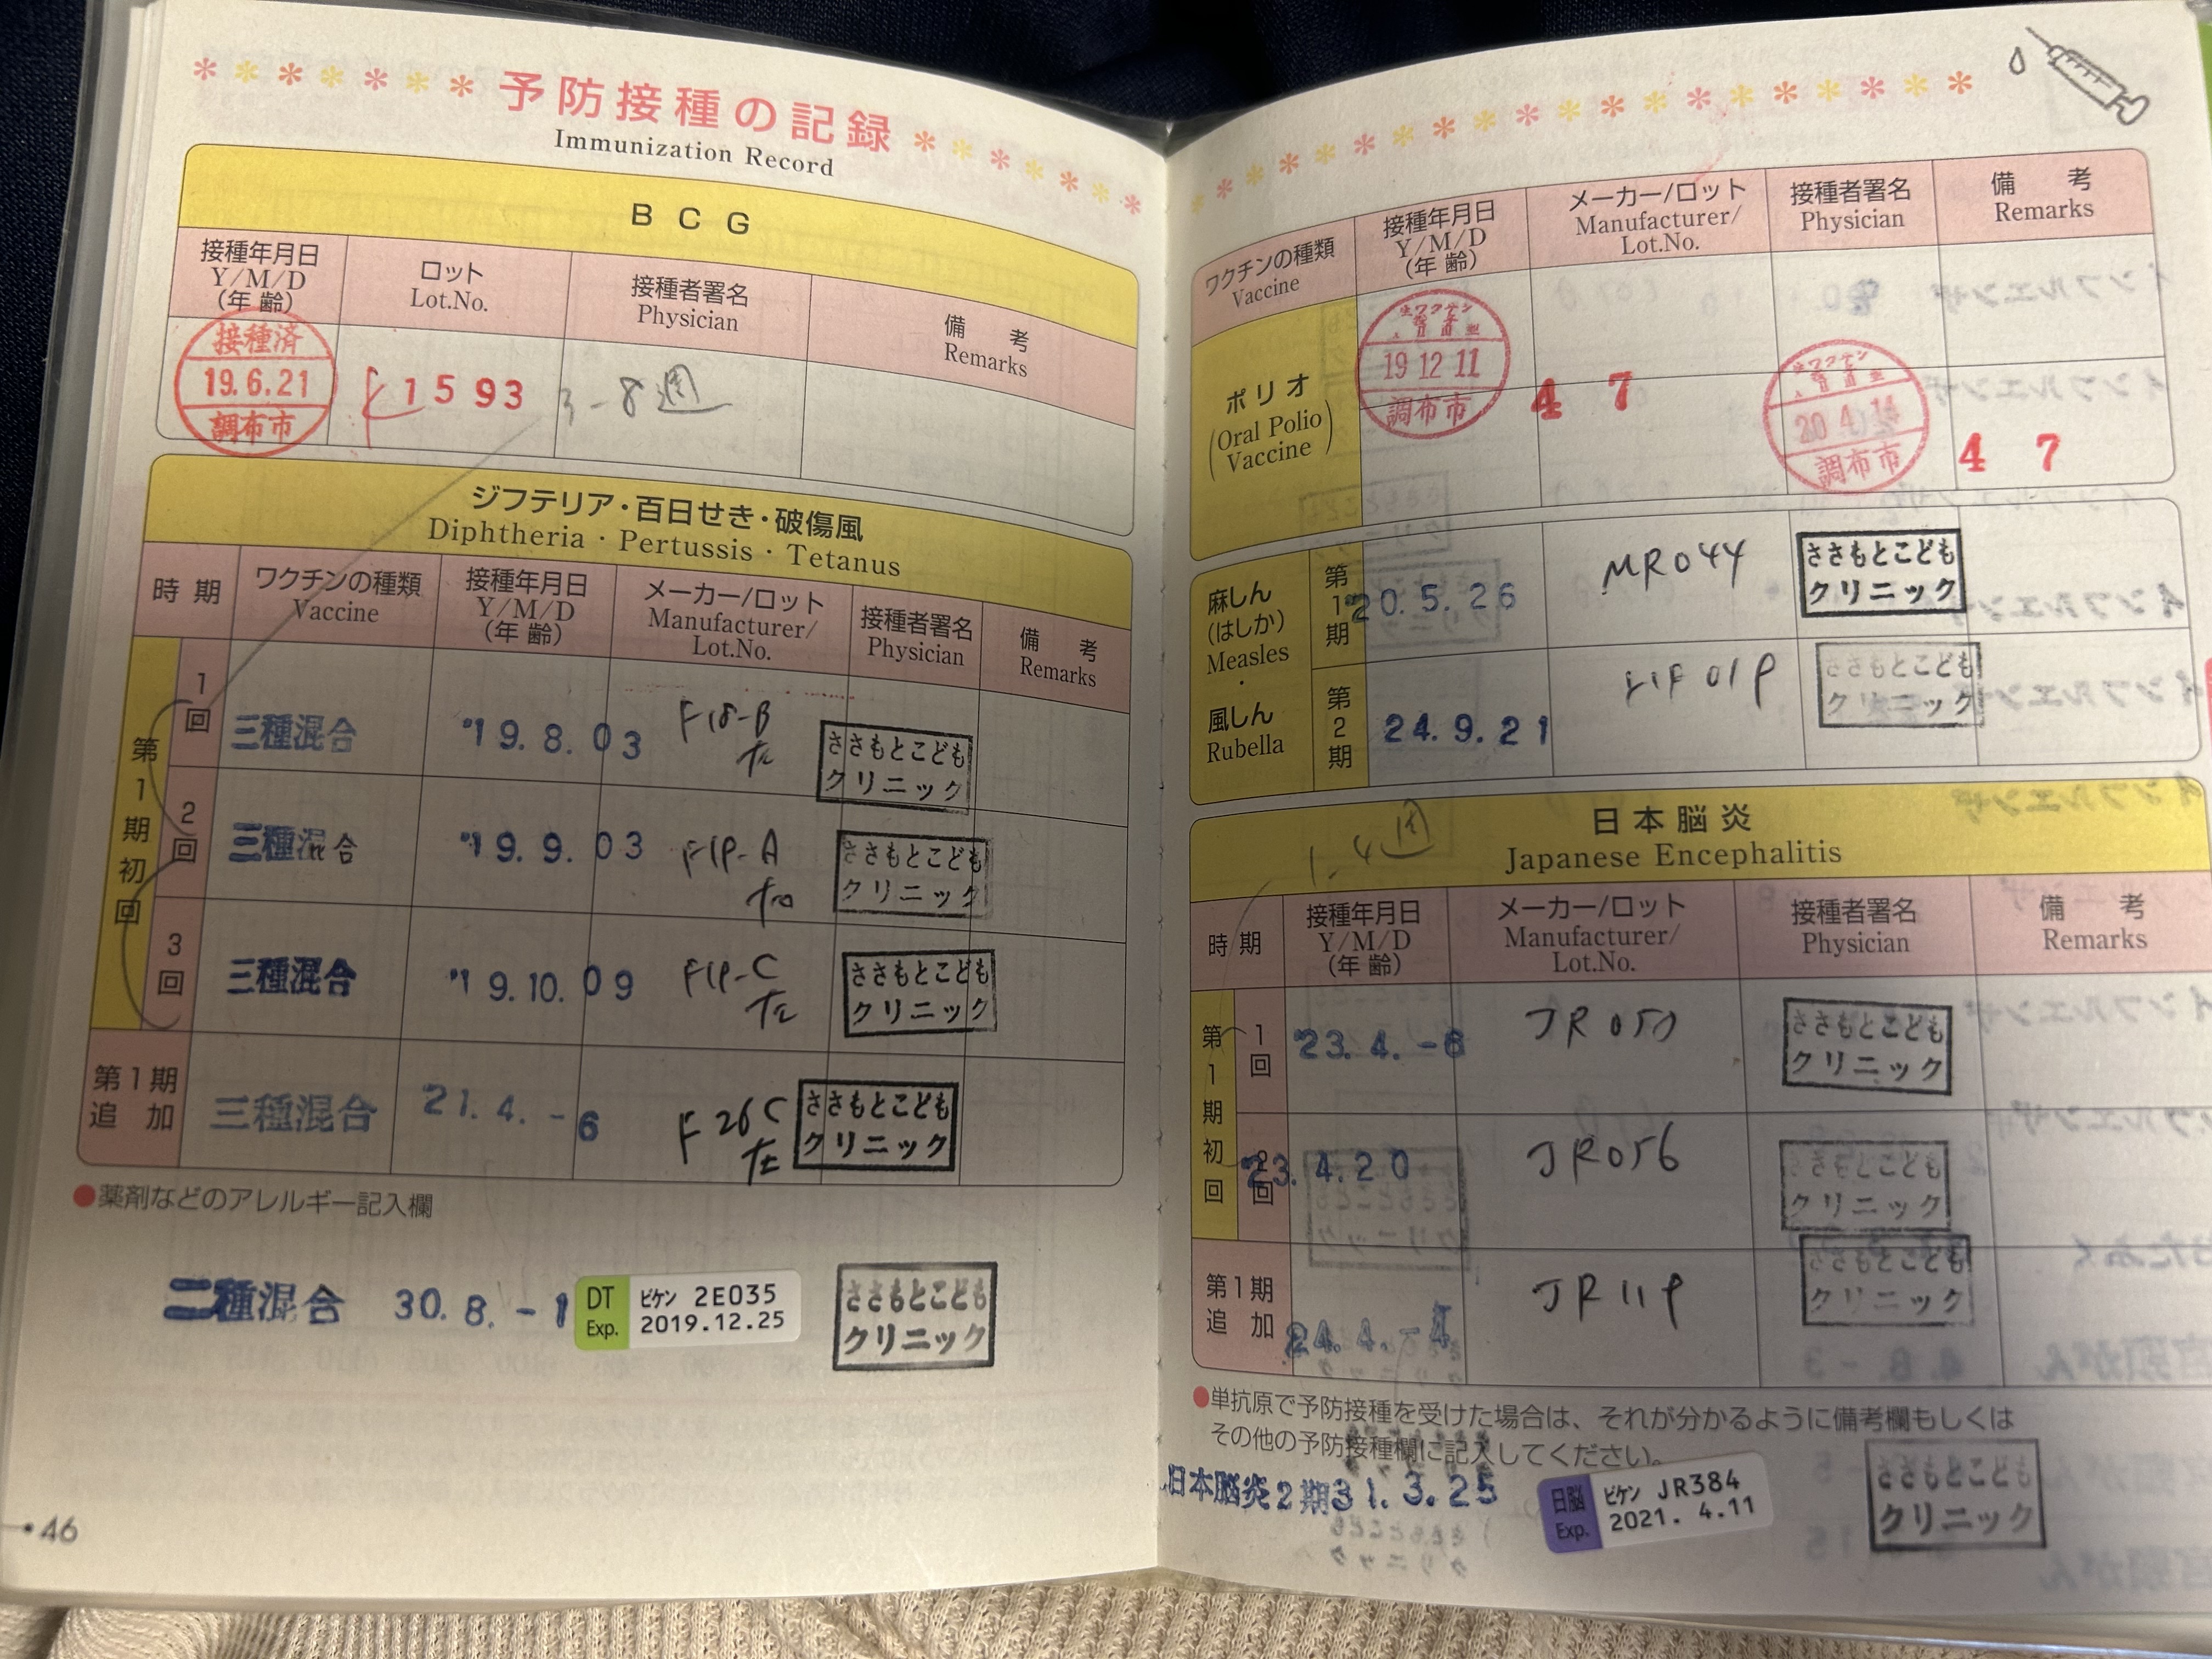 予防接種の記録
Immunization Record
BCG
接種年月日
Y/M/D
(年齢)
ロット
Lot.No.
接種者署名
Physician
備考
Remarks
接種済
19.6.21
調布市
1593
3-8週
ジフテリア・百日せき・破傷風
Diphtheria・Pertussis・Tetanus
時期
ワクチンの種類
Vaccine
接種年月日
Y/M/D
(年齢)
メーカー/ロット
Manufacturer/
Lot.No.
接種者署名
Physician
備考
Remarks
第1期初回
1回
三種混合
'19.8.03
F18-B
ささもとこども
クリニック
2回
三種混合
'19.9.03
F19-A
ささもとこども
クリニック
3回
三種混合
'19.10.09
F19-C
ささもとこども
クリニック
第1期
追加
三種混合
21.4.-6
F26C
ささもとこども
クリニック
●薬剤などのアレルギー記入欄
二種混合 30.8.-1
DT
Exp.
ビケン 2E035
2019.12.25
ささもとこども
クリニック
46
ワクチンの種類
Vaccine
接種年月日
Y/M/D
(年齢)
メーカー/ロット
Manufacturer/
Lot.No.
接種者署名
Physician
備考
Remarks
ポリオ
(Oral Polio
Vaccine)
生ワクチン
19 12 11
調布市
47
生ワクチン
20 4 14
調布市
47
麻しん
(はしか)
Measles
・
風しん
Rubella
第1期
20.5.26
MR044
ささもとこども
クリニック
第2期
24.9.21
ささもとこども
クリニック
日本脳炎
Japanese Encephalitis
1-4週
時期
接種年月日
Y/M/D
(年齢)
メーカー/ロット
Manufacturer/
Lot.No.
接種者署名
Physician
備考
Remarks
第1期初回
1回
'23.4.-6
ささもとこども
クリニック
2回
23.4.20
JR056
ささもとこども
クリニック
第1期
追加
24.4.-4
JR119
ささもとこども
クリニック
●単抗原で予防接種を受けた場合は、それが分かるように備考欄もしくは
その他の予防接種欄に記入してください。
日本脳炎2期31.3.25
日脳
Exp.
ビケン JR384
2021. 4.11
ささもとこども
クリニック